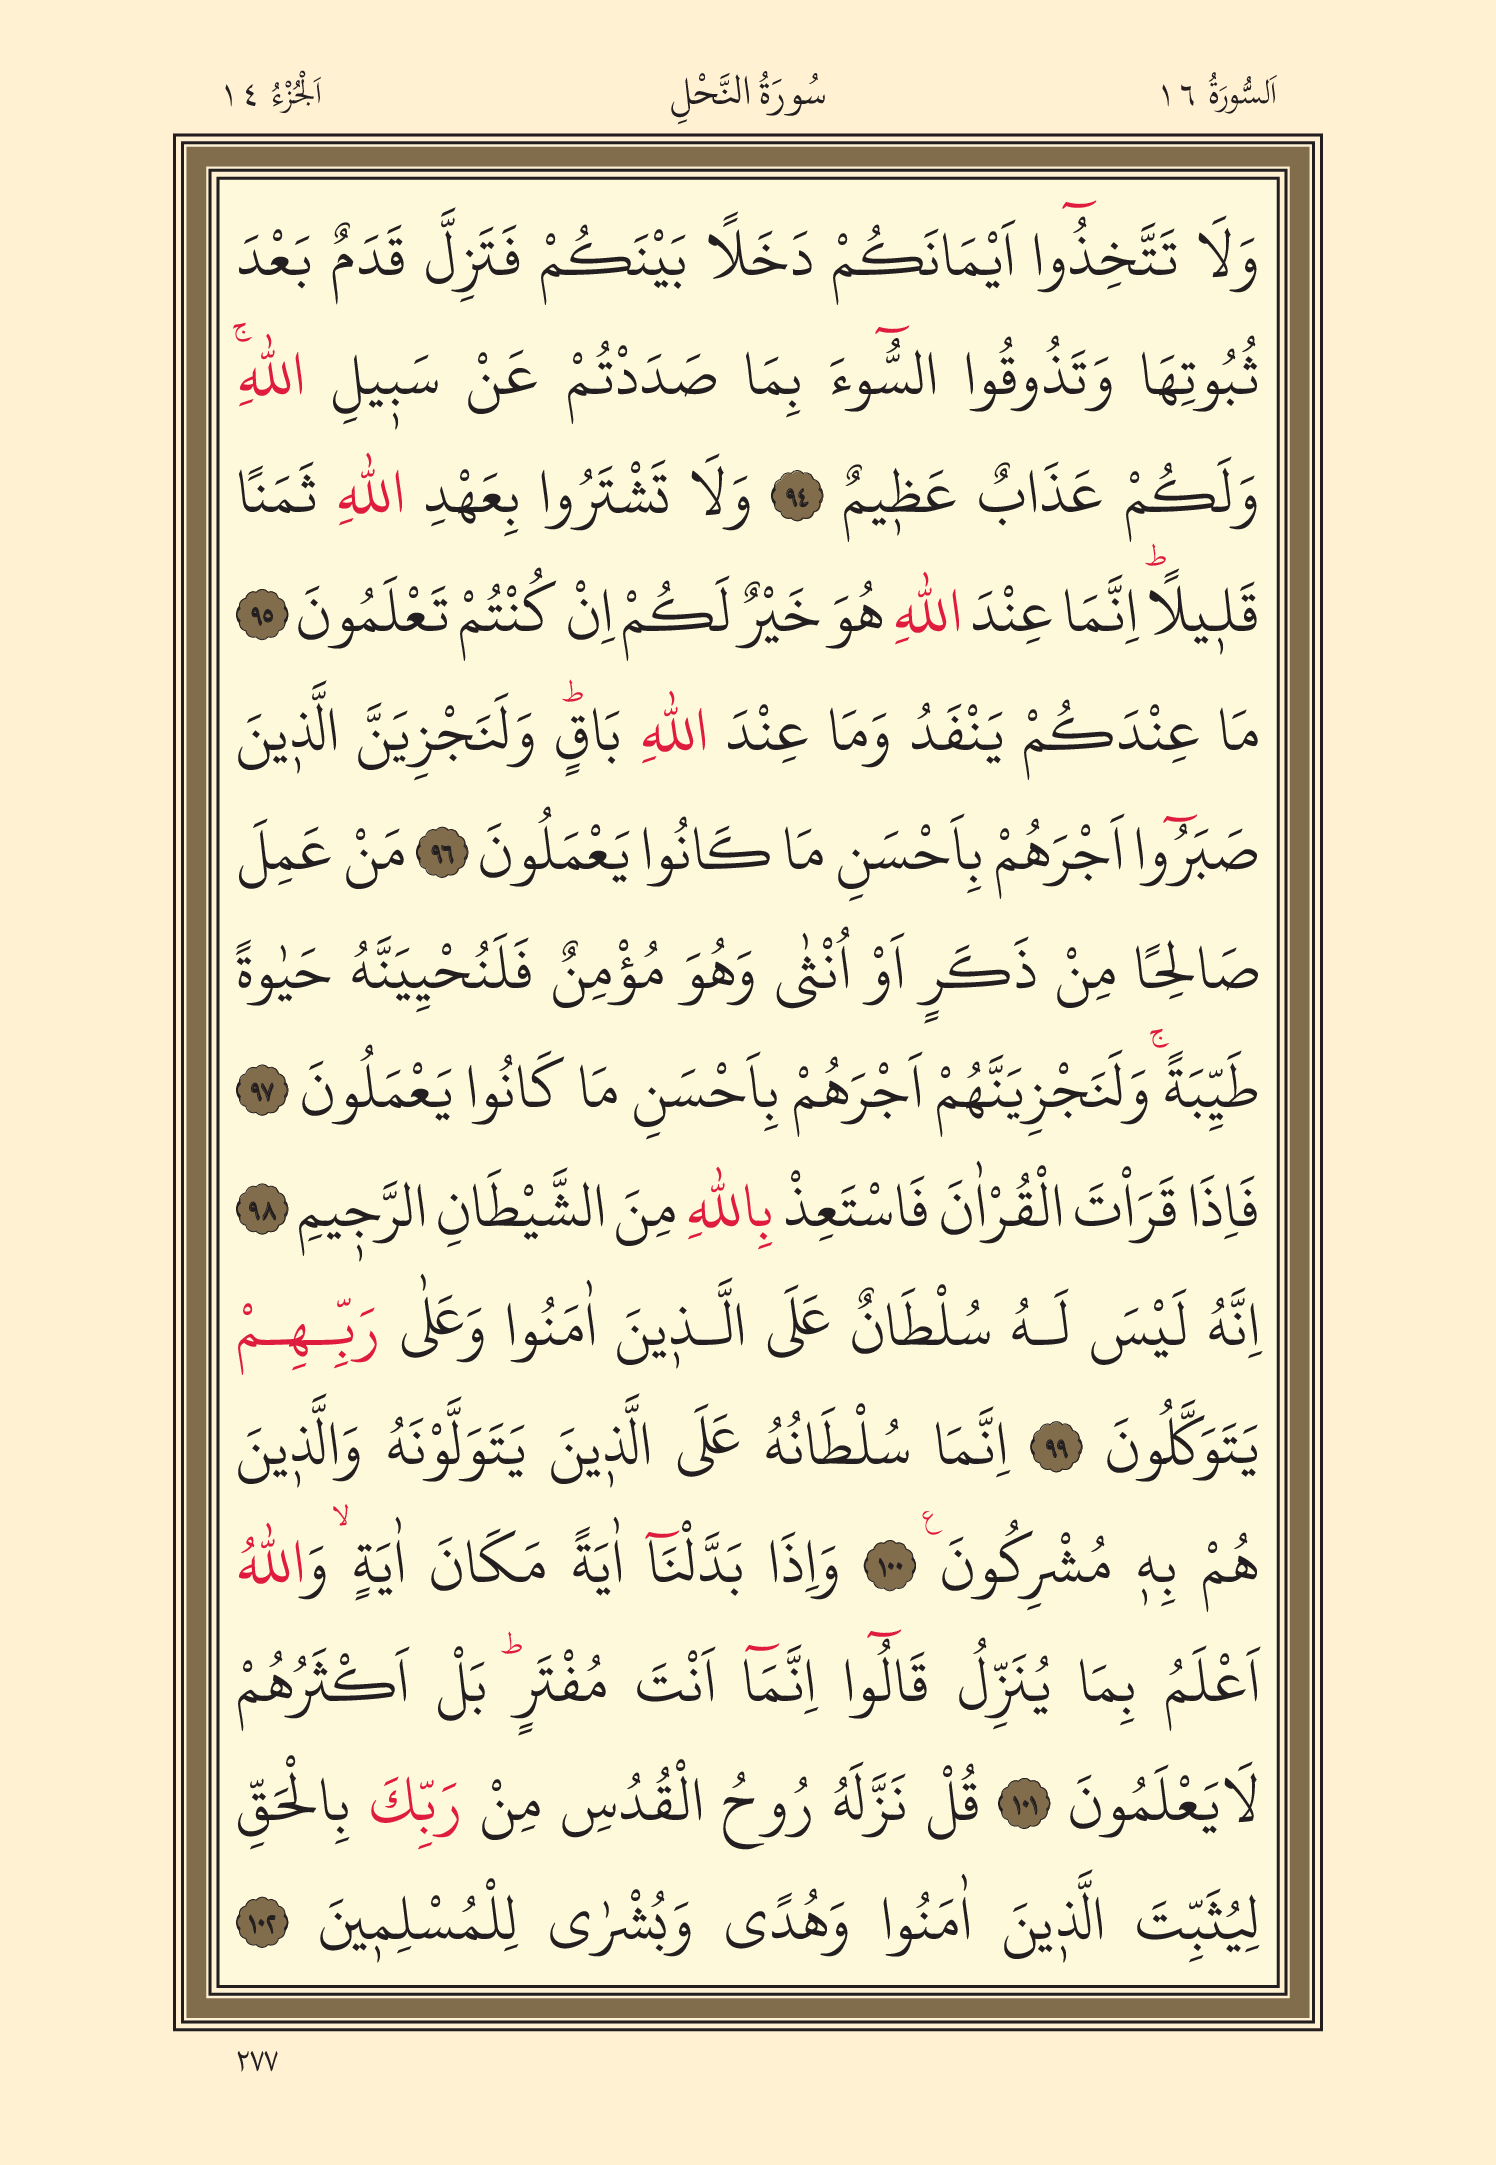 اَلسُّورَةُ ١٦ سُورَةُ النَّحْلِ اَلْجُزْءُ ١٤
وَلَا تَتَّخِذُٓوا اَيْمَانَكُمْ دَخَلًا بَيْنَكُمْ فَتَزِلَّ قَدَمٌ بَعْدَ
ثُبُوتِهَا وَتَذُوقُوا السُّٓوءَ بِمَا صَدَدْتُمْ عَنْ سَب۪يلِ اللّٰهِۚ
وَلَكُمْ عَذَابٌ عَظ۪يمٌ ﴿٩٤﴾ وَلَا تَشْتَرُوا بِعَهْدِ اللّٰهِ ثَمَنًا
قَل۪يلًاؕ اِنَّمَا عِنْدَ اللّٰهِ هُوَ خَيْرٌ لَكُمْ اِنْ كُنْتُمْ تَعْلَمُونَ ﴿٩٥﴾
مَا عِنْدَكُمْ يَنْفَدُ وَمَا عِنْدَ اللّٰهِ بَاقٍؕ وَلَنَجْزِيَنَّ الَّذ۪ينَ
صَبَرُٓوا اَجْرَهُمْ بِاَحْسَنِ مَا كَانُوا يَعْمَلُونَ ﴿٩٦﴾ مَنْ عَمِلَ
صَالِحًا مِنْ ذَكَرٍ اَوْ اُنْثٰى وَهُوَ مُؤْمِنٌ فَلَنُحْيِيَنَّهُ حَيٰوةً
طَيِّبَةًۚ وَلَنَجْزِيَنَّهُمْ اَجْرَهُمْ بِاَحْسَنِ مَا كَانُوا يَعْمَلُونَ ﴿٩٧﴾
فَاِذَا قَرَاْتَ الْقُرْاٰنَ فَاسْتَعِذْ بِاللّٰهِ مِنَ الشَّيْطَانِ الرَّج۪يمِ ﴿٩٨﴾
اِنَّهُ لَيْسَ لَـهُ سُلْطَانٌ عَلَى الَّـذ۪ينَ اٰمَنُوا وَعَلٰى رَبِّـهِـمْ
يَتَوَكَّلُونَ ﴿٩٩﴾ اِنَّمَا سُلْطَانُهُ عَلَى الَّذ۪ينَ يَتَوَلَّوْنَهُ وَالَّذ۪ينَ
هُمْ بِه۪ مُشْرِكُونَ ع ﴿١٠٠﴾ وَاِذَا بَدَّلْنَٓا اٰيَةً مَكَانَ اٰيَةٍۙ وَاللّٰهُ
اَعْلَمُ بِمَا يُنَزِّلُ قَالُٓوا اِنَّمَٓا اَنْتَ مُفْتَرٍؕ بَلْ اَكْثَرُهُمْ
لَا يَعْلَمُونَ ﴿١٠١﴾ قُلْ نَزَّلَهُ رُوحُ الْقُدُسِ مِنْ رَبِّكَ بِالْحَقِّ
لِيُثَبِّتَ الَّذ۪ينَ اٰمَنُوا وَهُدًى وَبُشْرٰى لِلْمُسْلِم۪ينَ ﴿١٠٢﴾
٢٧٧